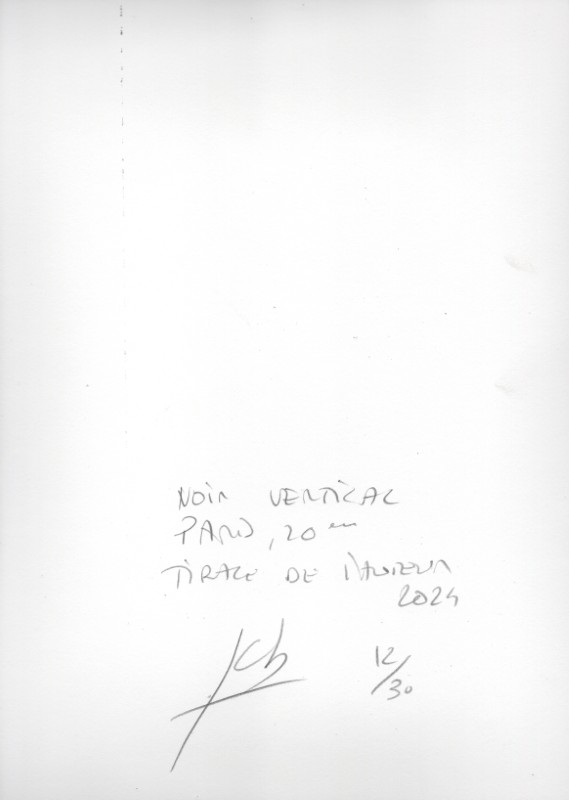 NOIR VERTICAL
PARIS, 20 em
TIRAGE DE L'AUTEUR
2024
12/30